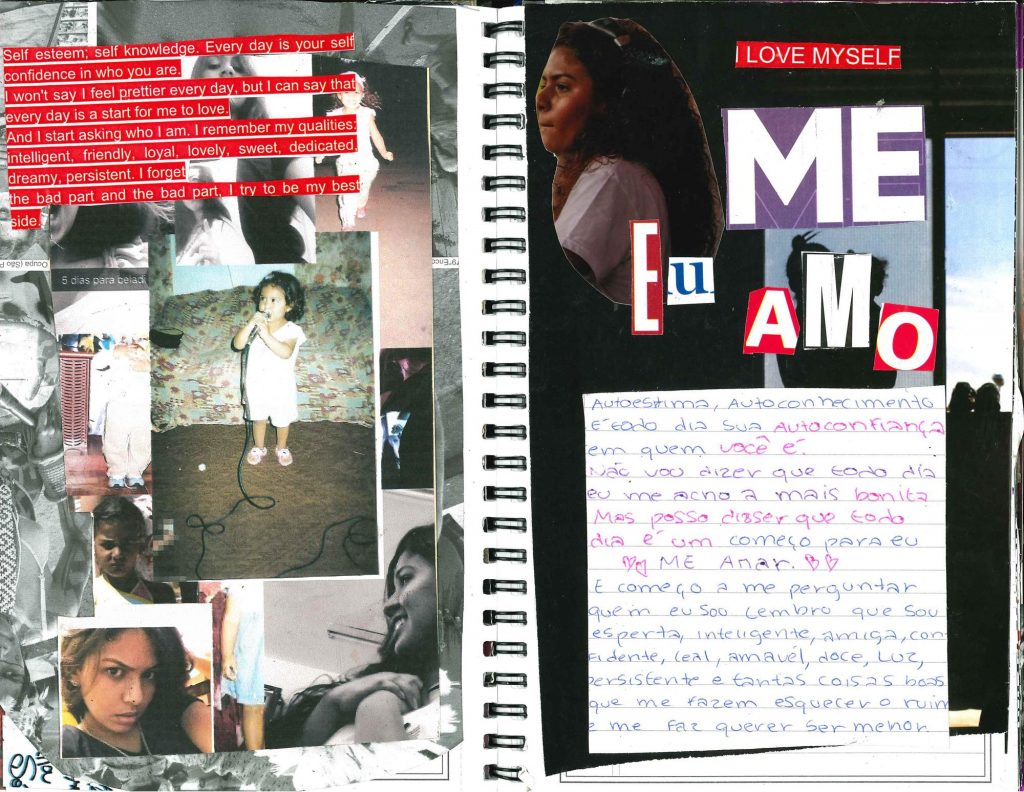 Self esteem; self knowledge. Every day is your self
confidence in who you are.
I won't say I feel prettier every day, but I can say that
every day is a start for me to love.
And I start asking who I am. I remember my qualities:
intelligent, friendly, loyal, lovely, sweet, dedicated,
dreamy, persistent. I forget
the bad part and the bad part, I try to be my best
side.
Ocupa (São P
5 dias para
I LOVE MYSELF
ME
Eu
AMO
Autoestima, Autoconhecimento
É todo dia sua Autoconfiança
em quem você é.
Não vou dizer que todo dia
eu me acho a mais bonita
Mas posso disser que todo
dia é um começo para eu
ME Amar.
E começo a me perguntar
quem eu sou Lembro que sou
esperta, inteligente, amiga, con
fidente, leal, amavél, doce, Luz,
persistente e tantas coisas boas
que me fazem esquecer o ruim
e me faz querer ser menor.